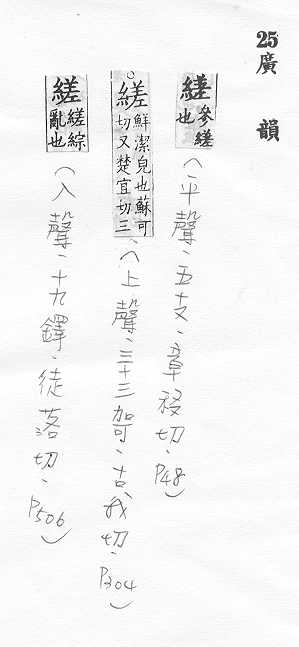 25廣韻
縒參縒也(平聲、五支、章移切、P48)
○縒鮮潔皃也蘇可切又楚宜切三、(上聲、三十三哿、古我切、P304)
縒縒綜亂也(入聲、十九鐸、徒落切、P506)